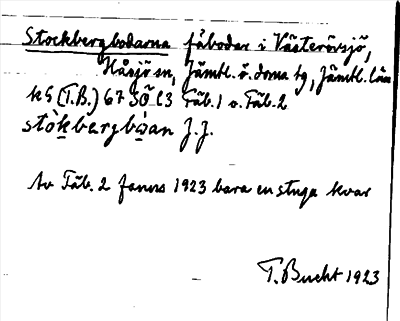 Stockbergbodarna fäbodar i Västerövsjö,
Håsjö sn, Jämtl. ö. doms tg, Jämtl. län
k 5 (T.B.) 67 SÖ l3 Fäb. 1 o. Fäb. 2
J.J.
Av Fäb. 2 fanns 1923 bara en stuga kvar
T. Bucht 1923